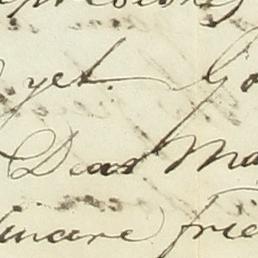 yet. Go
Dear Ma
sincere frie